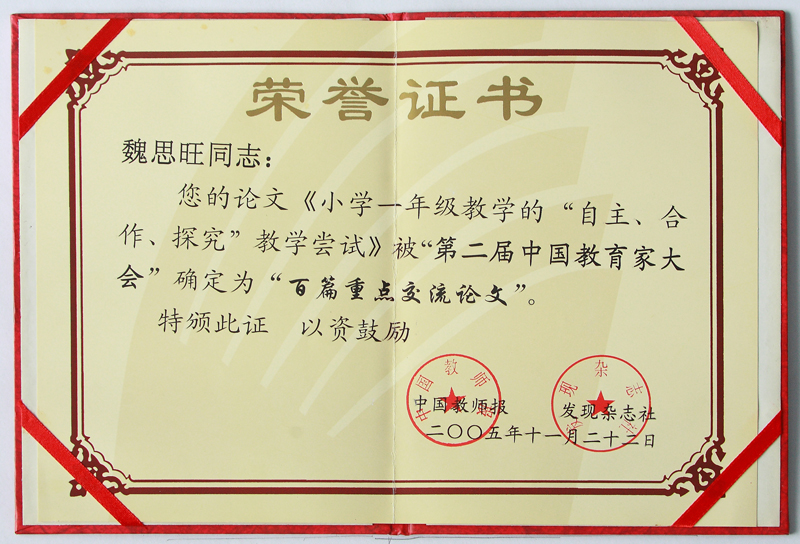 荣誉证书
魏思旺同志：
您的论文《小学一年级教学的“自主、合
作、探究”教学尝试》被“第二届中国教育家大
会”确定为“百篇重点交流论文”。
特颁此证 以资鼓励
中国教师报
发现杂志社
中国教师报 发现杂志社
二〇〇五年十一月二十二日